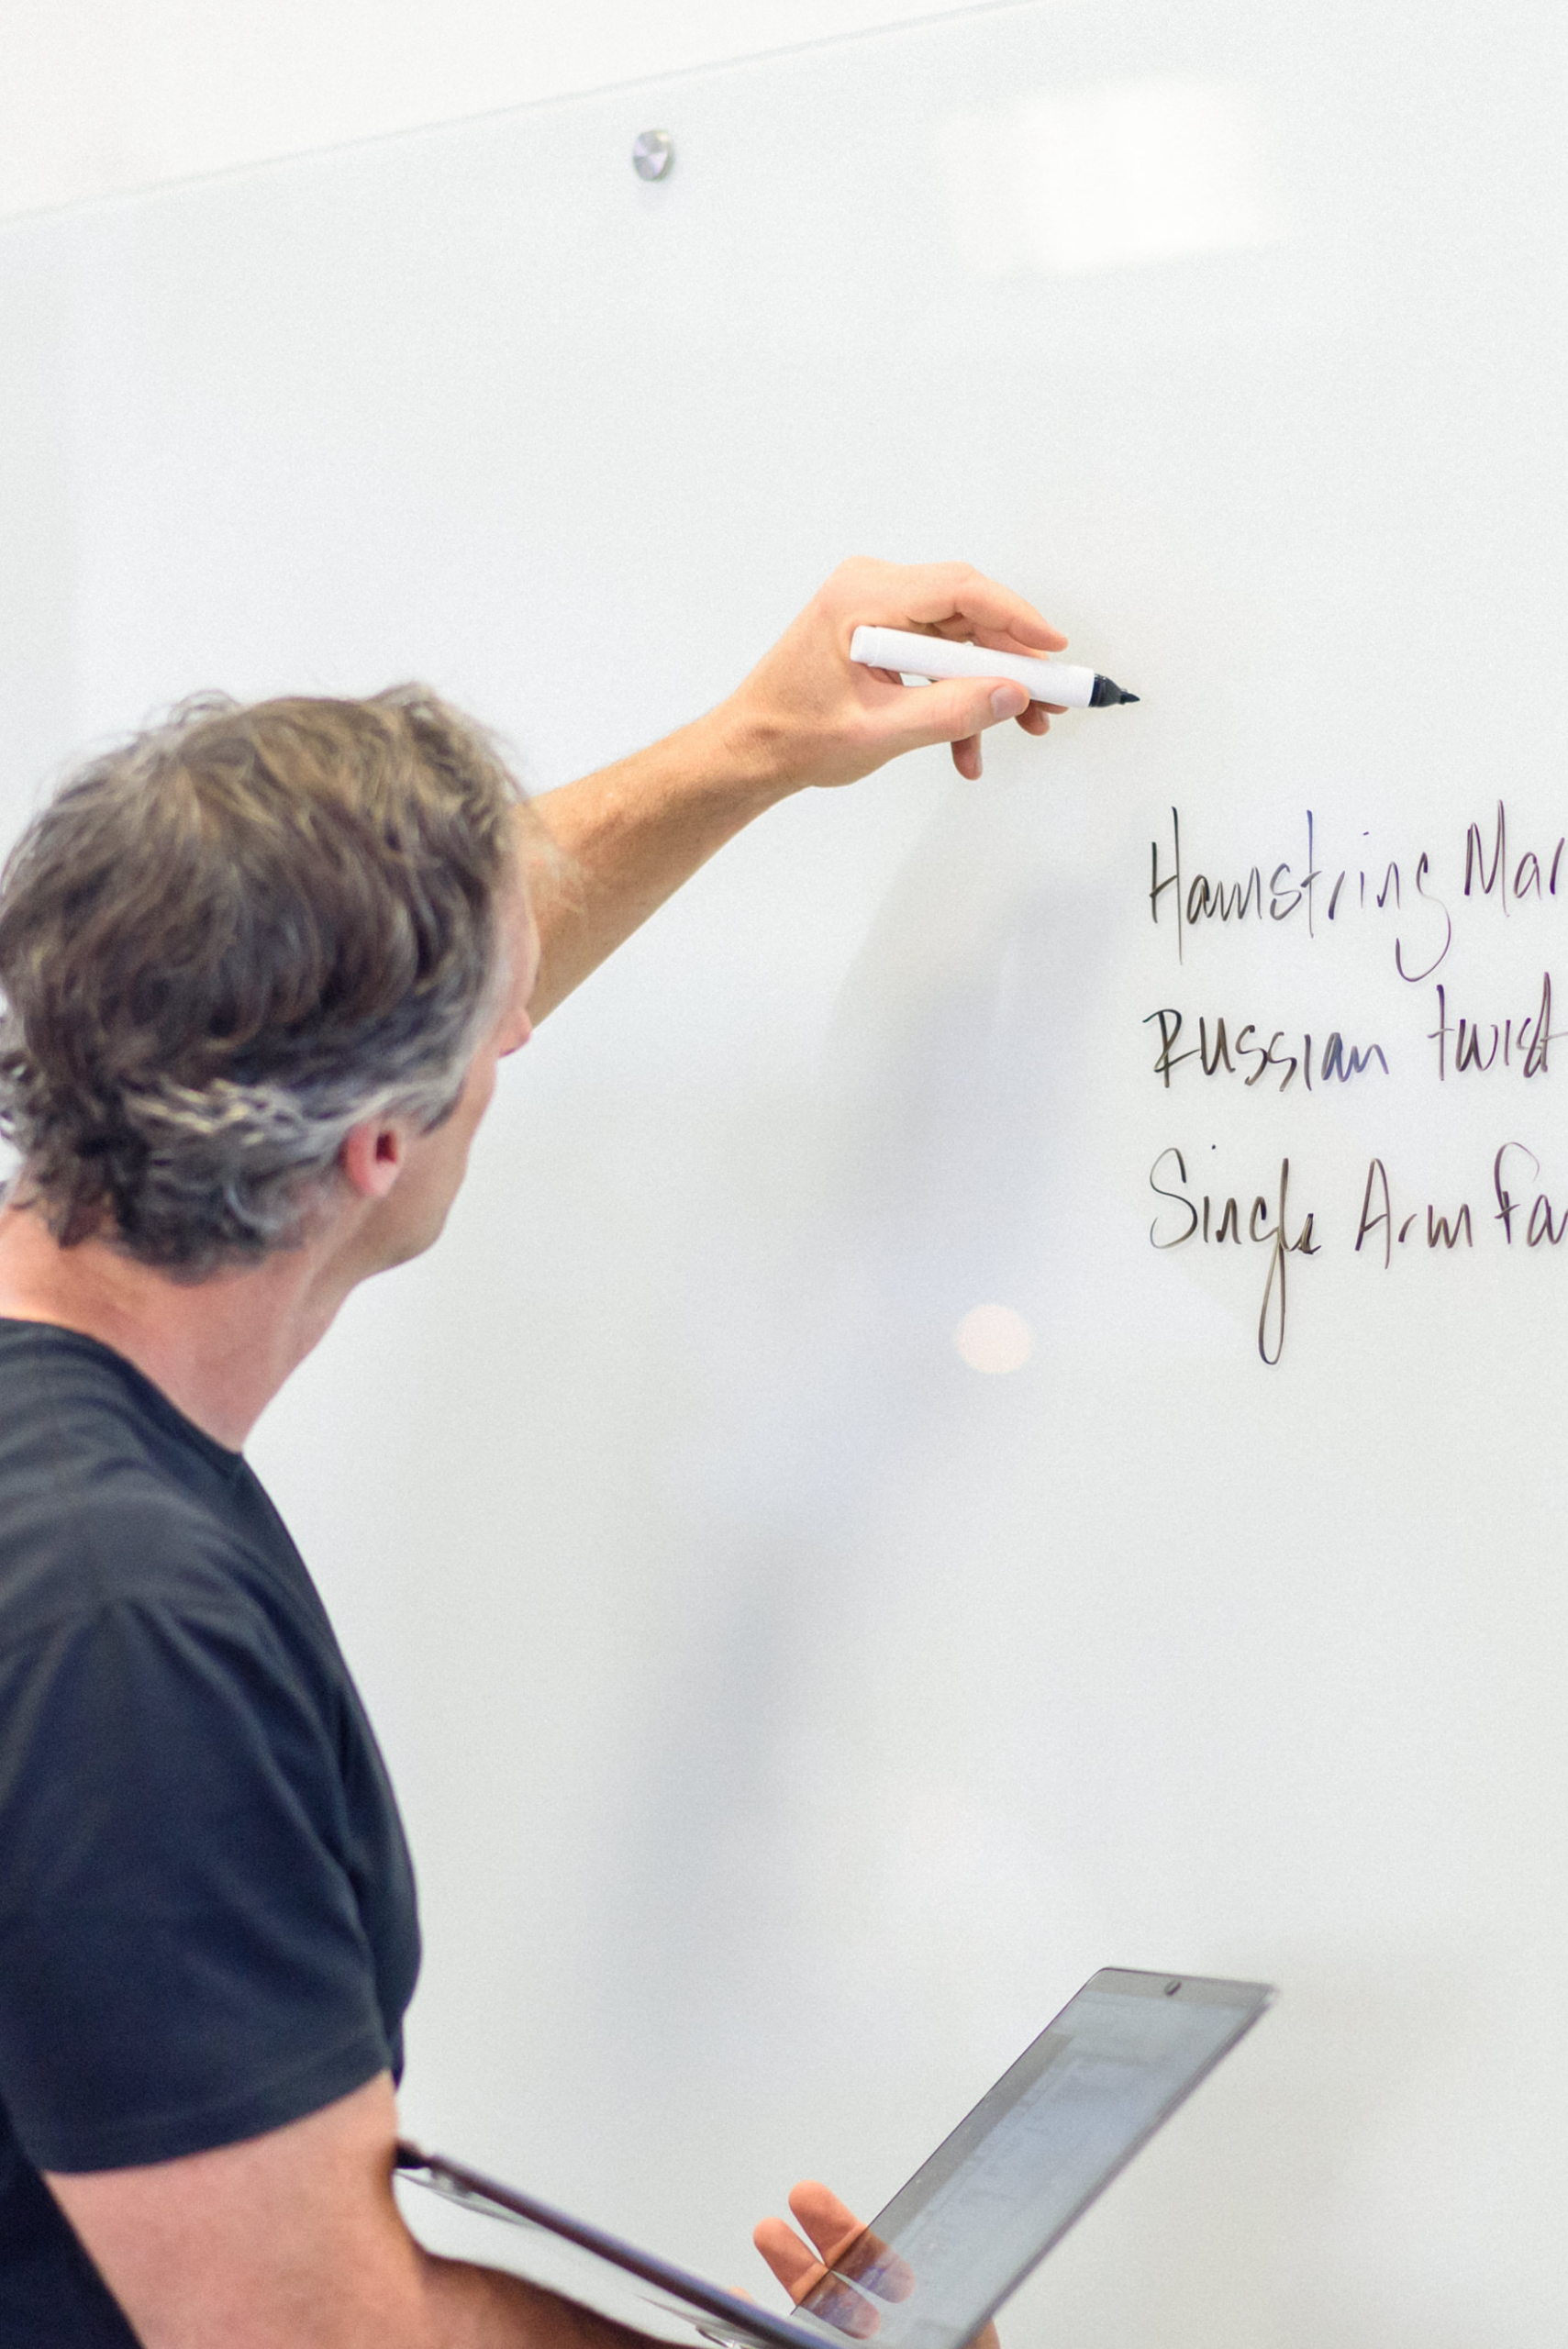 Hamstring Mar
Russian twist
Single Arm Fa